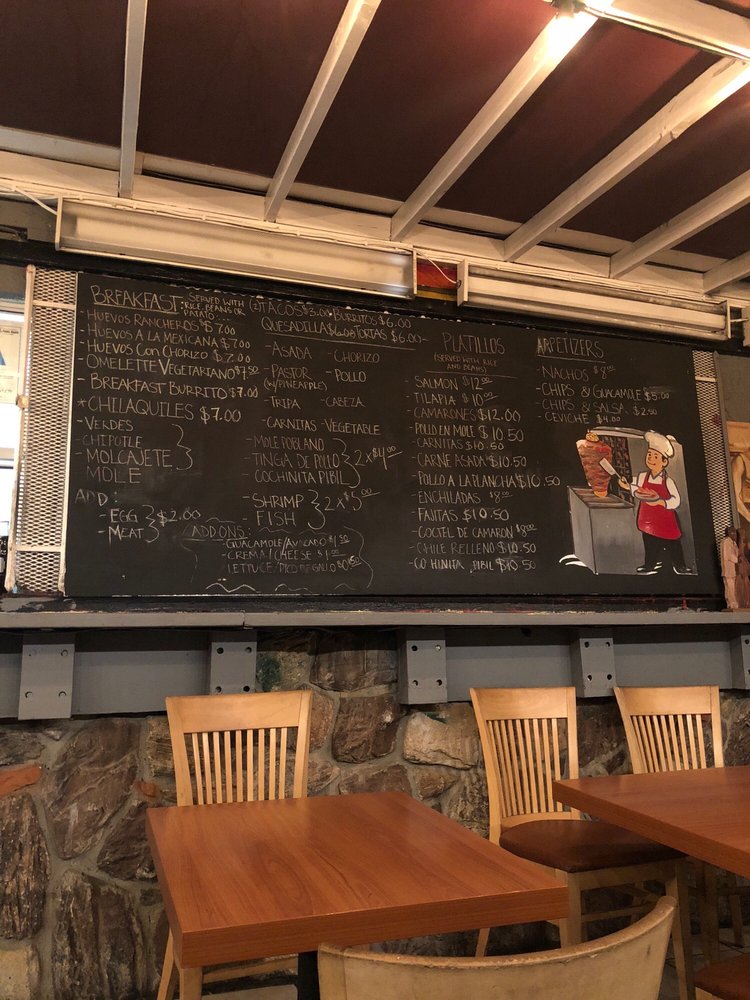 BREAKFAST: SERVED WITH
RICE BEANS OR
PATATO
- HUEVOS RANCHEROS $7.00
- HUEVOS A LA MEXICANA $7.00
- HUEVOS CON CHORIZO $7.00
- OMELETTE VEGETARIANO $7.50
- BREAKFAST BURRITO $7.00
*CHILAQUILES $7.00
- VERDES
- CHIPOTLE
- MOLCAJETE
MOLE
ADD:
- EGG
- MEAT
$2.00
TACOS $3.00 BURRITOS $6.00
QUESADILLA $6.00 TORTAS $6.00-
- ASADA - CHORIZO
- PASTOR - POLLO
(W/PINEAPPLE)
- TRIPA - CABEZA
- CARNITAS - VEGETABLE
- MOLE POBLANO
- TINGA DE POLLO
- COCHINITA PIBIL
2 x $4.00
- SHRIMP
- FISH
2 x $5.00
ADD ONS:
- GUACAMOLE/AVOCADO $1.50
- CREMA/CHEESE $1.00
- LETTUCE/PICO DE GALLO $0.50
PLATILLOS
(SERVED WITH RICE
AND BEANS)
- SALMON $12.00
- TILAPIA $10.00
- CAMARONES $12.00
- POLLO EN MOLE $10.50
- CARNITAS $10.50
- CARNE ASADA $10.50
- POLLO A LA PLANCHA $10.50
- ENCHILADAS $8.00
- FAJITAS $10.50
- COCTEL DE CAMARON $8.00
- CHILE RELLENO $10.50
- CO HINITA PIBIL $10.50
APPETIZERS
- NACHOS $8.00
- CHIPS & GUACAMOLE $5.00
- CHIPS & SALSA $2.50
- CEVICHE $4.00